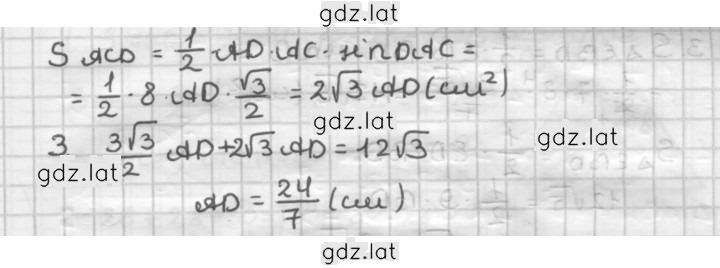 gdz.lat
S ACD = 1/2 AD · AC · sin DAC =
= 1/2 · 8 · AD · √3/2 = 2√3 AD (см²)
gdz.lat
gdz.lat
3 3√3/2 AD + 2√3 AD = 12√3
gdz.lat
AD = 24/7 (см)
gdz.lat